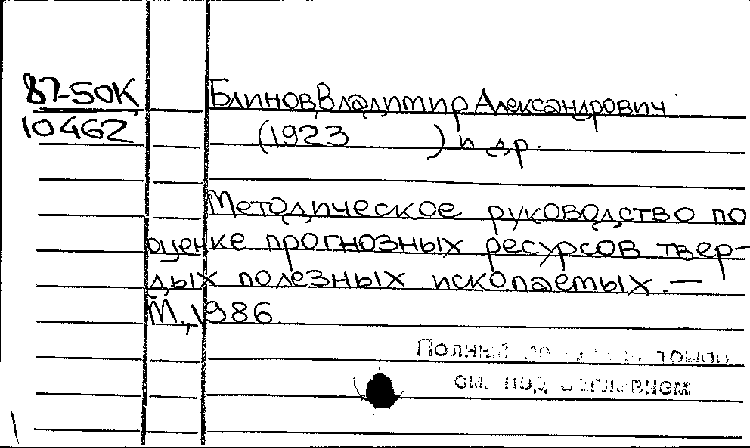 87-50К Блинов, Владимир Александрович
10462 (1923 ) и др.
Методическое руководство по
оценке прогнозных ресурсов твер-
дых полезных ископаемых. —
М., 1986.
Полный
см. под